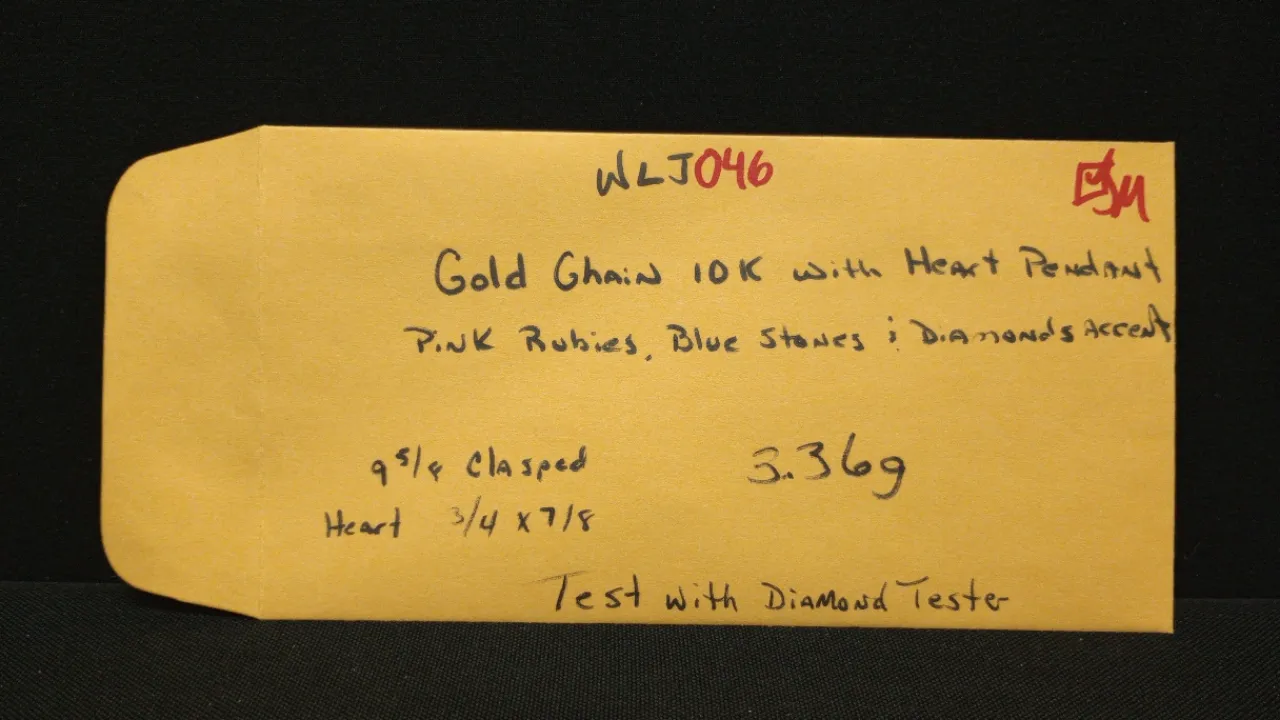 WLJ046
Gold Chain 10K with Heart Pendant
Pink Rubies, Blue Stones & Diamonds Accent
9 5/8 Clasped
3.36g
Heart 3/4 x 7/8
Test with Diamond Tester